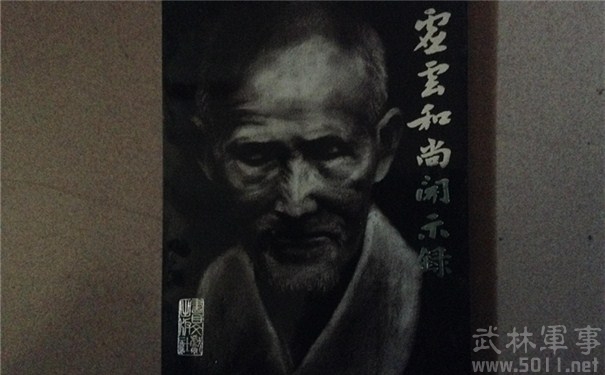 虚雲和尚開示録
武林軍事
www.5011.net